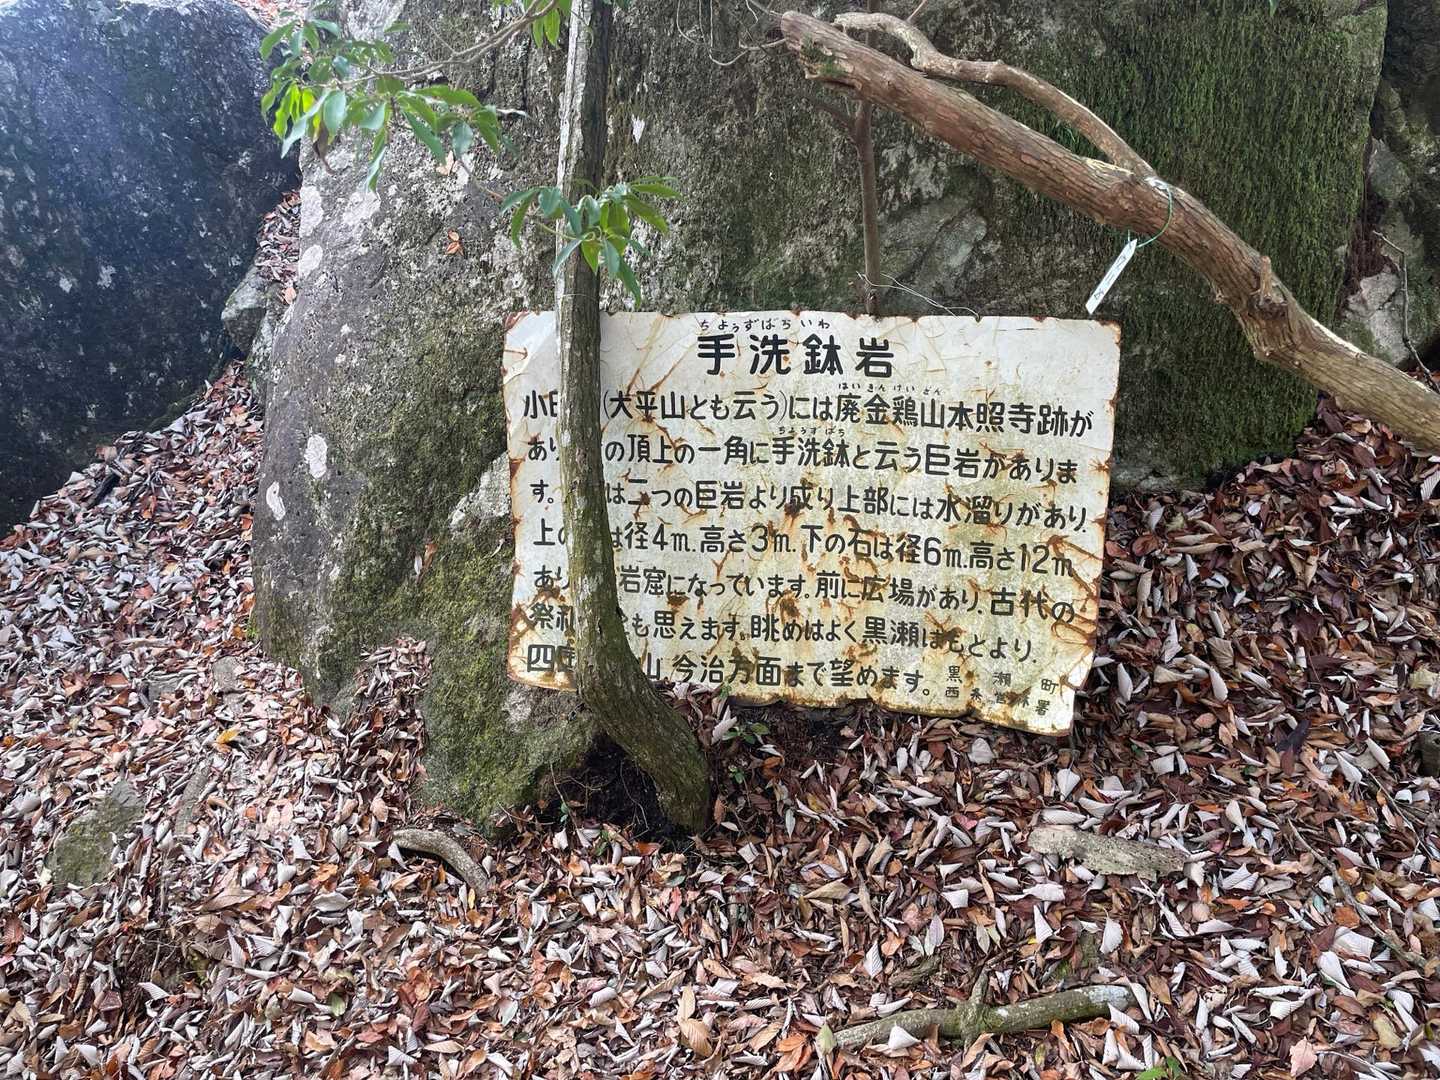 ちょうずばちいわ
手洗鉢岩
はいきんけいざん
小田 (大平山とも云う)には廃金鶏山本照寺跡が
ちょうずばち
あり の頂上の一角に手洗鉢と云う巨岩がありま
す。 は二つの巨岩より成り上部には水溜りがあり.
上の は径4m.高さ3m.下の石は径6m.高さ12m
あり 岩窟になっています。前に広場があり.古代の
祭祀 も思えます。眺めはよく黒瀬はもとより.
四国 山.今治方面まで望めます。
黒瀬町
西条営林署